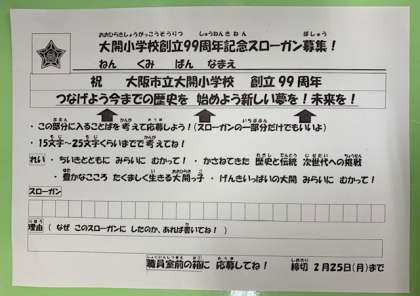 大開小学校創立99周年記念スローガン募集！
ねん　くみ　ばん　なまえ
祝　大阪市立大開小学校　創立99周年
つなげよう今までの歴史を　始めよう新しい夢を！未来を！
・この部分に入ることばを考えて応募しよう！（スローガンの一部分だけでもいいよ）
・15文字～25文字くらいまでで考えてね！
れい・ちいきとともに　みらいに　むかって！　・かさねてきた　歴史と伝統　次世代への挑戦
・豊かなこころ　たくましく生きる大開っ子　・げんきいっぱいの大開　みらいに　むかって！
スローガン
理由（なぜ　このスローガンに　したのか、あれば書いてね！）
職員室前の箱に　応募してね！　締切　2月25日(月)まで